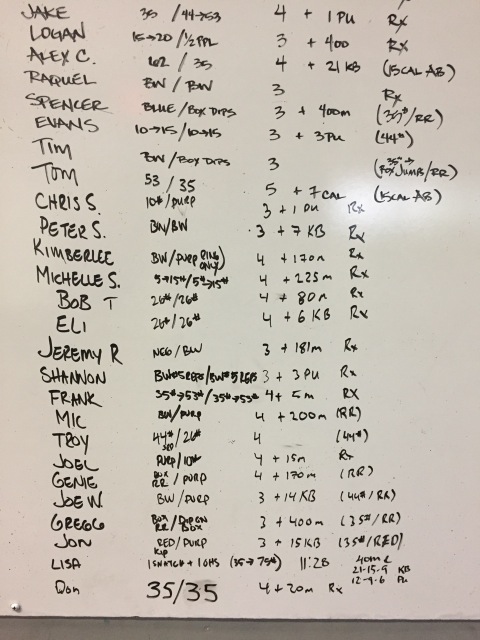 JAKE 35 / 44→53 4 + 1 PU Rx
LOGAN 15→20 / 1/2 PPL 3 + 400 Rx
ALEX C. / 35 4 + 21 KB (15 CAL AB)
RAQUEL BW / BW 3 Rx
SPENCER BLUE / BOX DIPS 3 + 400m (35# / RR)
EVANS 10→15 / 10→15 3 + 3 PU (44#)
TIM BW / BOX DIPS 3 (35# → BOX JUMPS / RR)
TOM 53 / 35 5 + 7 CAL (15 CAL AB)
CHRIS S. 10# / PURP 3 + 1 PU Rx
PETER S. BW/BW 3 + 7 KB Rx
KIMBERLEE BW / PURP RING ONLY) 4 + 170m Rx
MICHELLE S. 5→15# / 5#→15# 4 + 225m Rx
BOB T 26# / 26# 4 + 80m Rx
ELI 26# / 26# 4 + 6 KB Rx
JEREMY R NEG / BW 3 + 181m Rx
SHANNON BW#5REPS / BW# 5 REPS 3 + 3 PU Rx
FRANK 35#→53# / 35#→53# 4 + 5m RX
MIC BW / PURP 4 + 200m (RR)
TROY 44# / 26# 4 (44#)
JOEL PURP / 10# 4 + 15m Rx
GENIE BOX RR / PURP 4 + 170m (RR)
JOE W. BW / PURP 3 + 14 KB (44# / RR)
GREGG BOX RR / DIP ON BOX 3 + 400m (35# / RR)
JON RED / PURP KIP 3 + 15 KB (35# / RED)
LISA 1 SNATCH + 1 OHS (35→75#) 11:28 40m E 21-15-9 KB 12-9-6 PU
Don 35/35 4 + 20m Rx